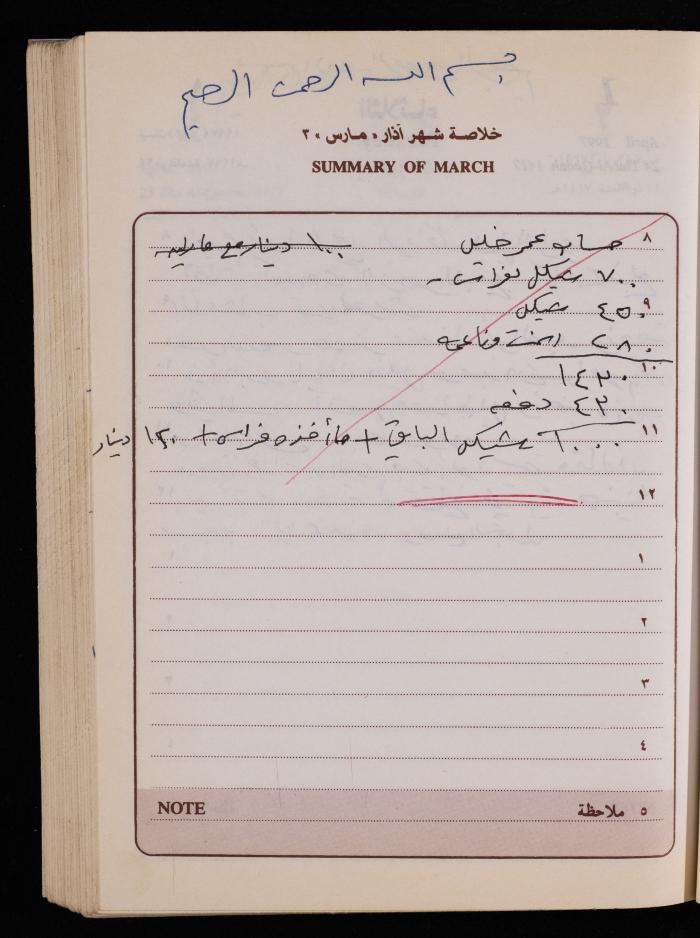 بسم الله الرحمن الرحيم
خلاصة شهر آذار «مارس» ٣
SUMMARY OF MARCH
٨ حساب عمر خليل ١٠٠ دينار مع
٧٠٠ شيكل
٩ ٤٥٠ شيكل
٢٨٠ اسمنت وناعمه
١٠ ١٤٣٠
٤٣٠ دفعه
١١ ١٠٠٠ شيكل الباقي + فراس + ١٣٠ دينار
١٢
١
٢
٣
٤
NOTE ٥ ملاحظة